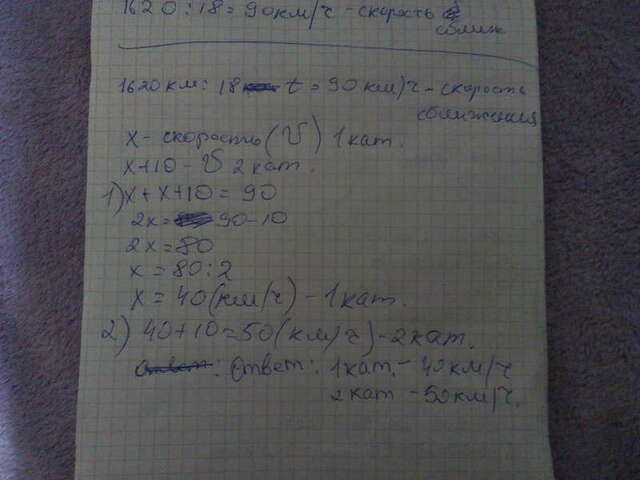 1620 : 18 = 90 км/ч - скорость
сближ
1620 км : 18 t = 90 км/ч - скорость
сближения
x - скорость (V) 1 кат.
x+10 - V 2 кат.
1) x + x+10 = 90
2x = 90-10
2x = 80
x = 80:2
x = 40 (км/ч) - 1 кат.
2) 40+10=50 (км/ч) - 2 кат.
Ответ: Ответ: 1 кат. - 40 км/ч
2 кат - 50 км/ч.